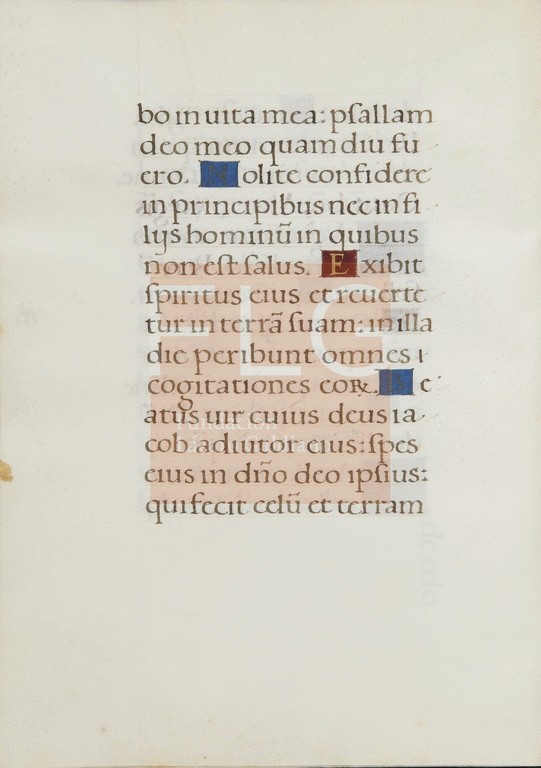 bo in uita mea: pſallam
deo meo quam diu fu
ero. Nolite confidere
in principibus nec in fi
lijs hominū in quibus
non eſt ſalus. Exibit
ſpiritus eius et reuerte
tur in terrā ſuam: in illa
die peribunt omnes
cogitationes eoꝝ. Be
atus uir cuius deus ia
cob adiutor eius: ſpes
eius in dño deo ipſius:
qui fecit celū et terram
FLG
Fundación